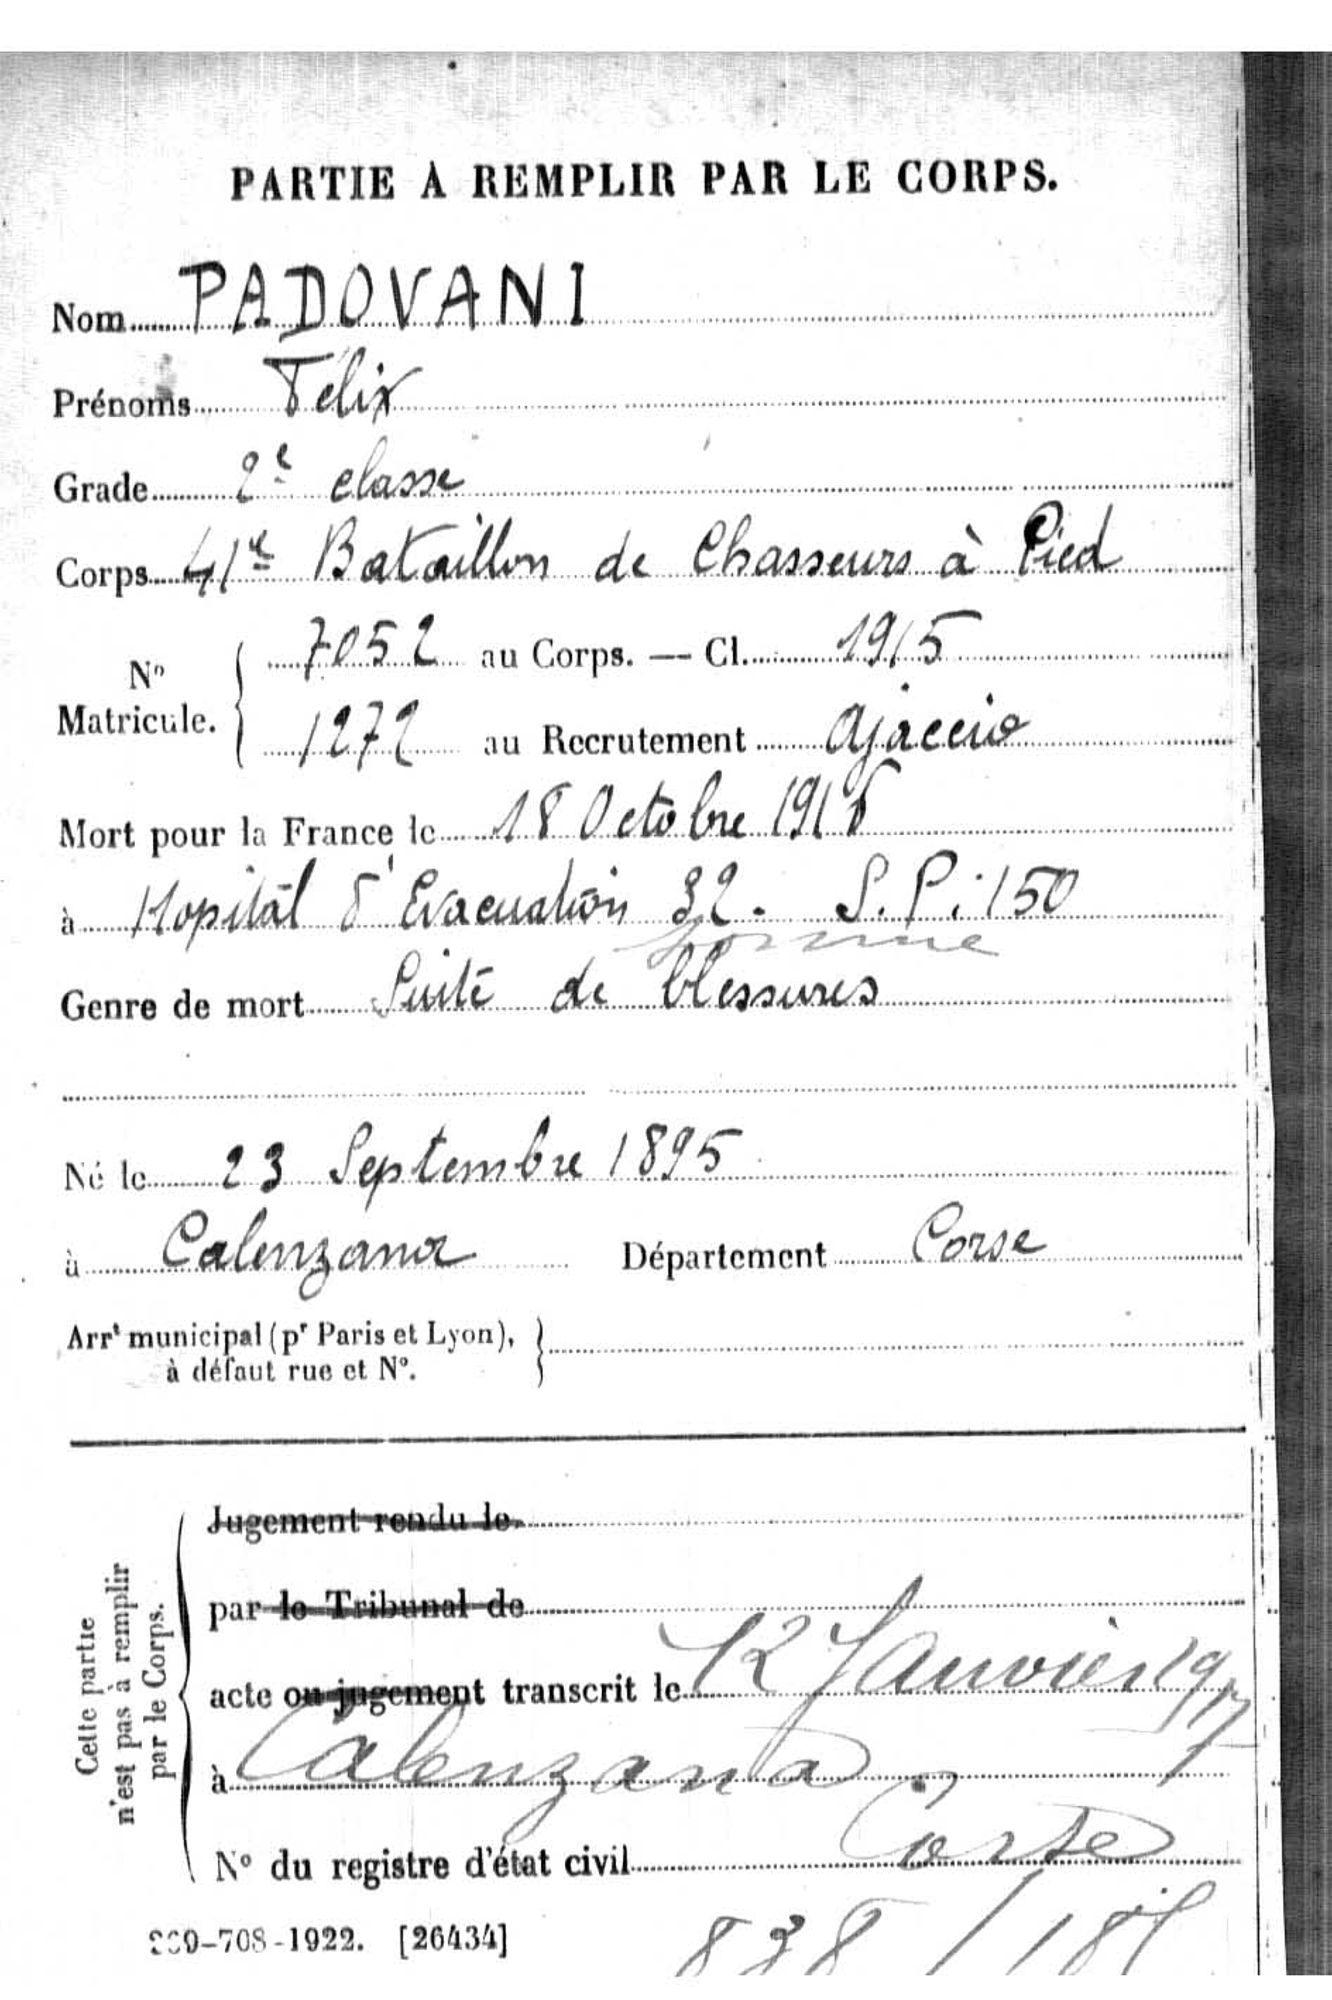 PARTIE À REMPLIR PAR LE CORPS.
Nom PADOVANI
Prénoms Félix
Grade 2e classe
Corps 41e Bataillon de Chasseurs à Pied
No Matricule. { 7052 au Corps. — Cl. 1915
1272 au Recrutement Ajaccio
Mort pour la France le 18 Octobre 1916
à Hopital d'Evacuation 32. S.P. 150
Somme
Genre de mort Suite de blessures
Né le 23 Septembre 1895
à Calenzana Département Corse
Arrt municipal (pr Paris et Lyon), à défaut rue et No. }
Cette partie n'est pas à remplir par le Corps. {
Jugement rendu le
par le Tribunal de
acte ou jugement transcrit le 12 Janvier 1917
à Calenzana
Corse
No du registre d'état civil
-708-1922. [26434]
838 /